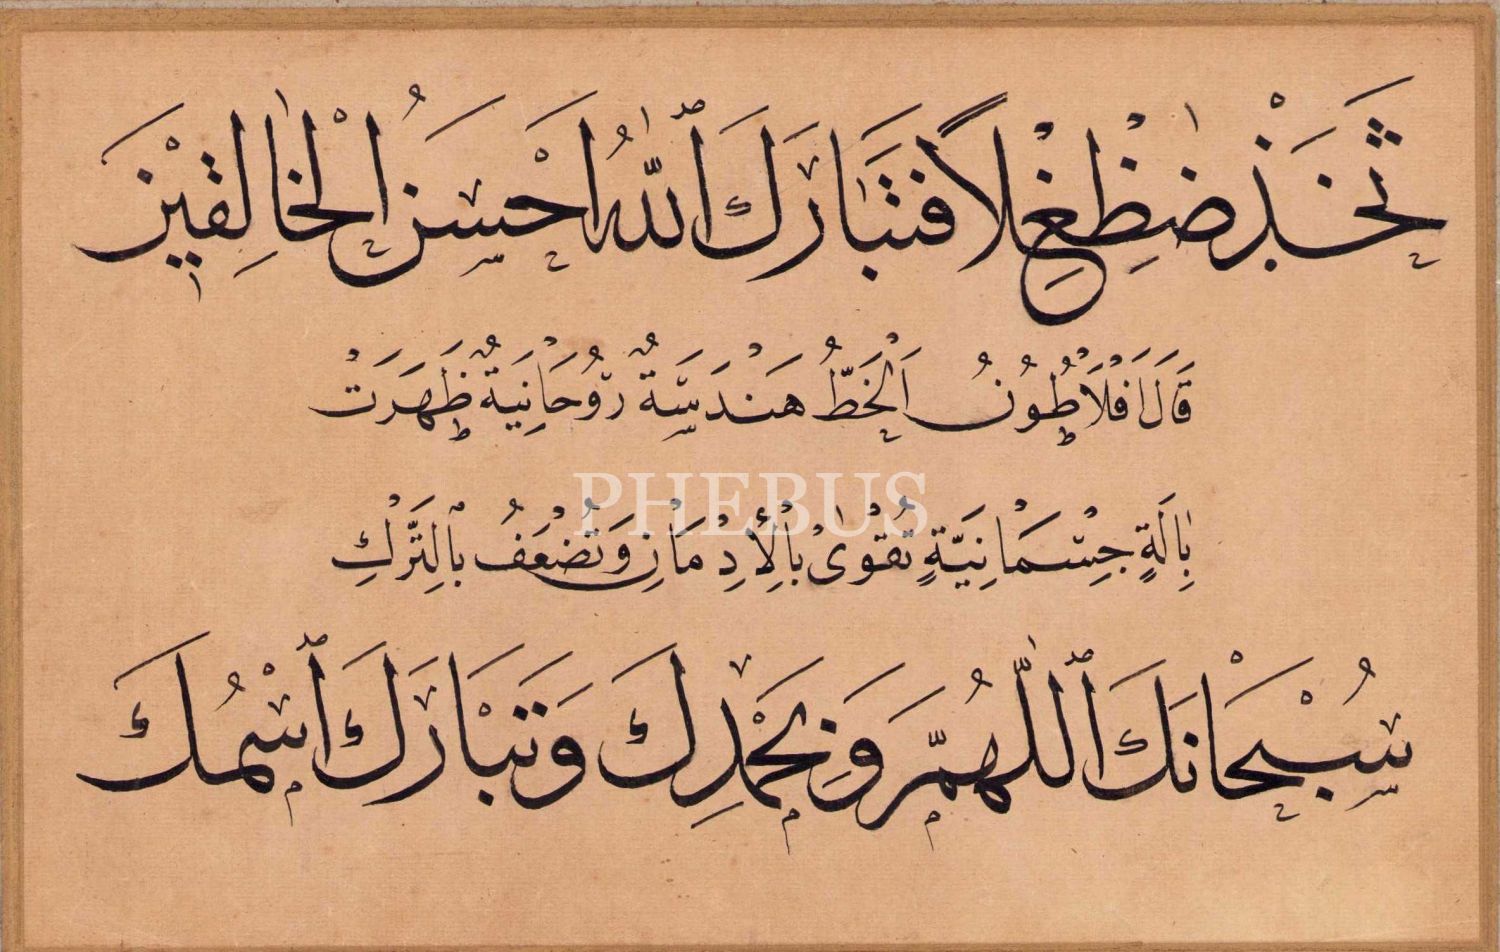 ثَخَذْ ضَظِغْلاً فَتَبَارَكَ ٱللّٰهُ اَحْسَنُ الْخَالِقِيْنَ
قَالَ اَفْلَاطُونُ اَلْخَطُّ هَنْدَسَةٌ رُوْحَانِيَةٌ ظَهَرَتْ
PHEBUS
بِالَةٍ جِسْمَانِيَّةٍ تُقْوٰى بْالْأِدْمَانِ وَتُضْعَفُ بْالتَّرْكِ
سُبْحَانَكَ ٱللّٰهُمَّ وَبِحَمْدِكَ وَتَبَارَكَ ٱسْمُكَ